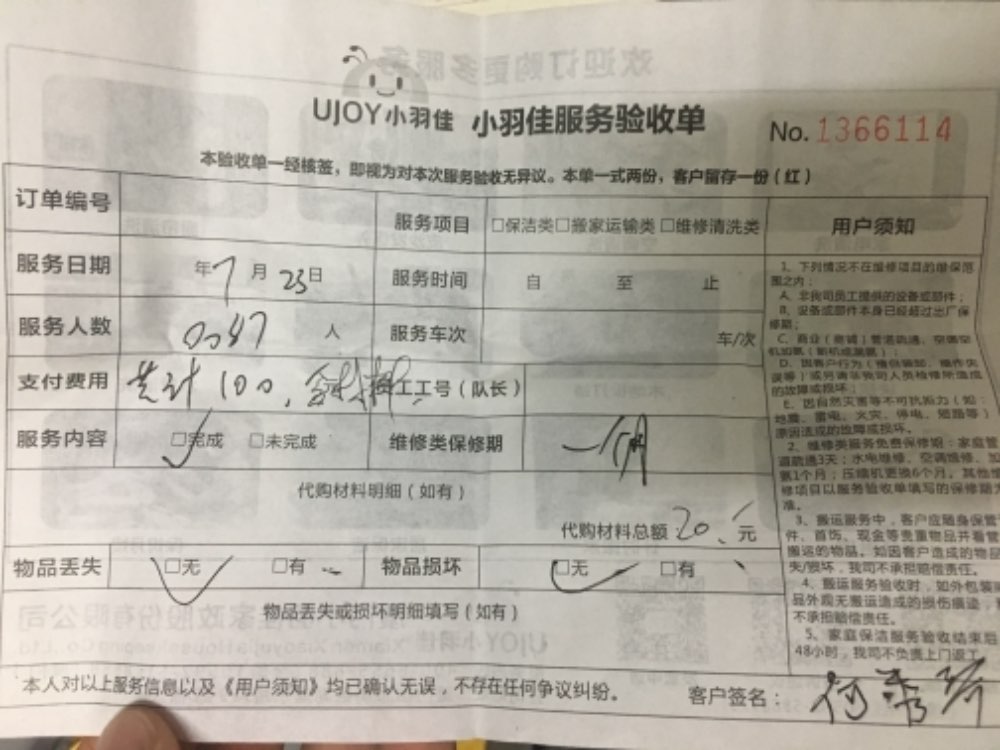 UJOY小羽佳 小羽佳服务验收单 No.1366114
本验收单一经核签，即视为对本次服务验收无异议。本单一式两份，客户留存一份（红）
订单编号 服务项目 □保洁类□搬家运输类□维修清洗类 用户须知
服务日期 年7月23日 服务时间 自 至 止
服务人数 0047 人 服务车次 车/次
支付费用 共计100, 工号（队长）
服务内容 □完成 □未完成 维修类保修期 一个月
代购材料明细（如有）
代购材料总额 20 元
物品丢失 □无 □有 物品损坏 □无 □有
物品丢失或损坏明细填写（如有）
本人对以上服务信息以及《用户须知》均已确认无误，不存在任何争议纠纷。 客户签名：何秀琴
1、下列情况不在维修项目的维保范
围之内：
A、非我司员工提供的设备或部件；
B、设备或部件本身已经超过出厂保
修期；
C、商业（商铺）管道疏通、空调空
的故障或损坏；
E、因自然灾害等不可抗拒力（如：
地震、雷电、火灾、停电、短路等）
原因造成的故障或损坏。
2、维修类服务免费保修期：家庭管
道疏通3天；水电维修、空调维修、加
氨1个月；压缩机更换6个月。其他维
修项目以服务验收单填写的保修期为
准。
3、搬运服务中，客户应随身保管
件、首饰、现金等贵重物品并看管
搬运的物品。如因客户造成的物品
失/损坏，我司不承担赔偿责任。
4、搬运服务验收时，如外包装
品外观无搬运造成的损伤痕迹，
不承担赔偿责任。
5、家庭保洁服务验收结束后
48小时，我司不负责上门返工